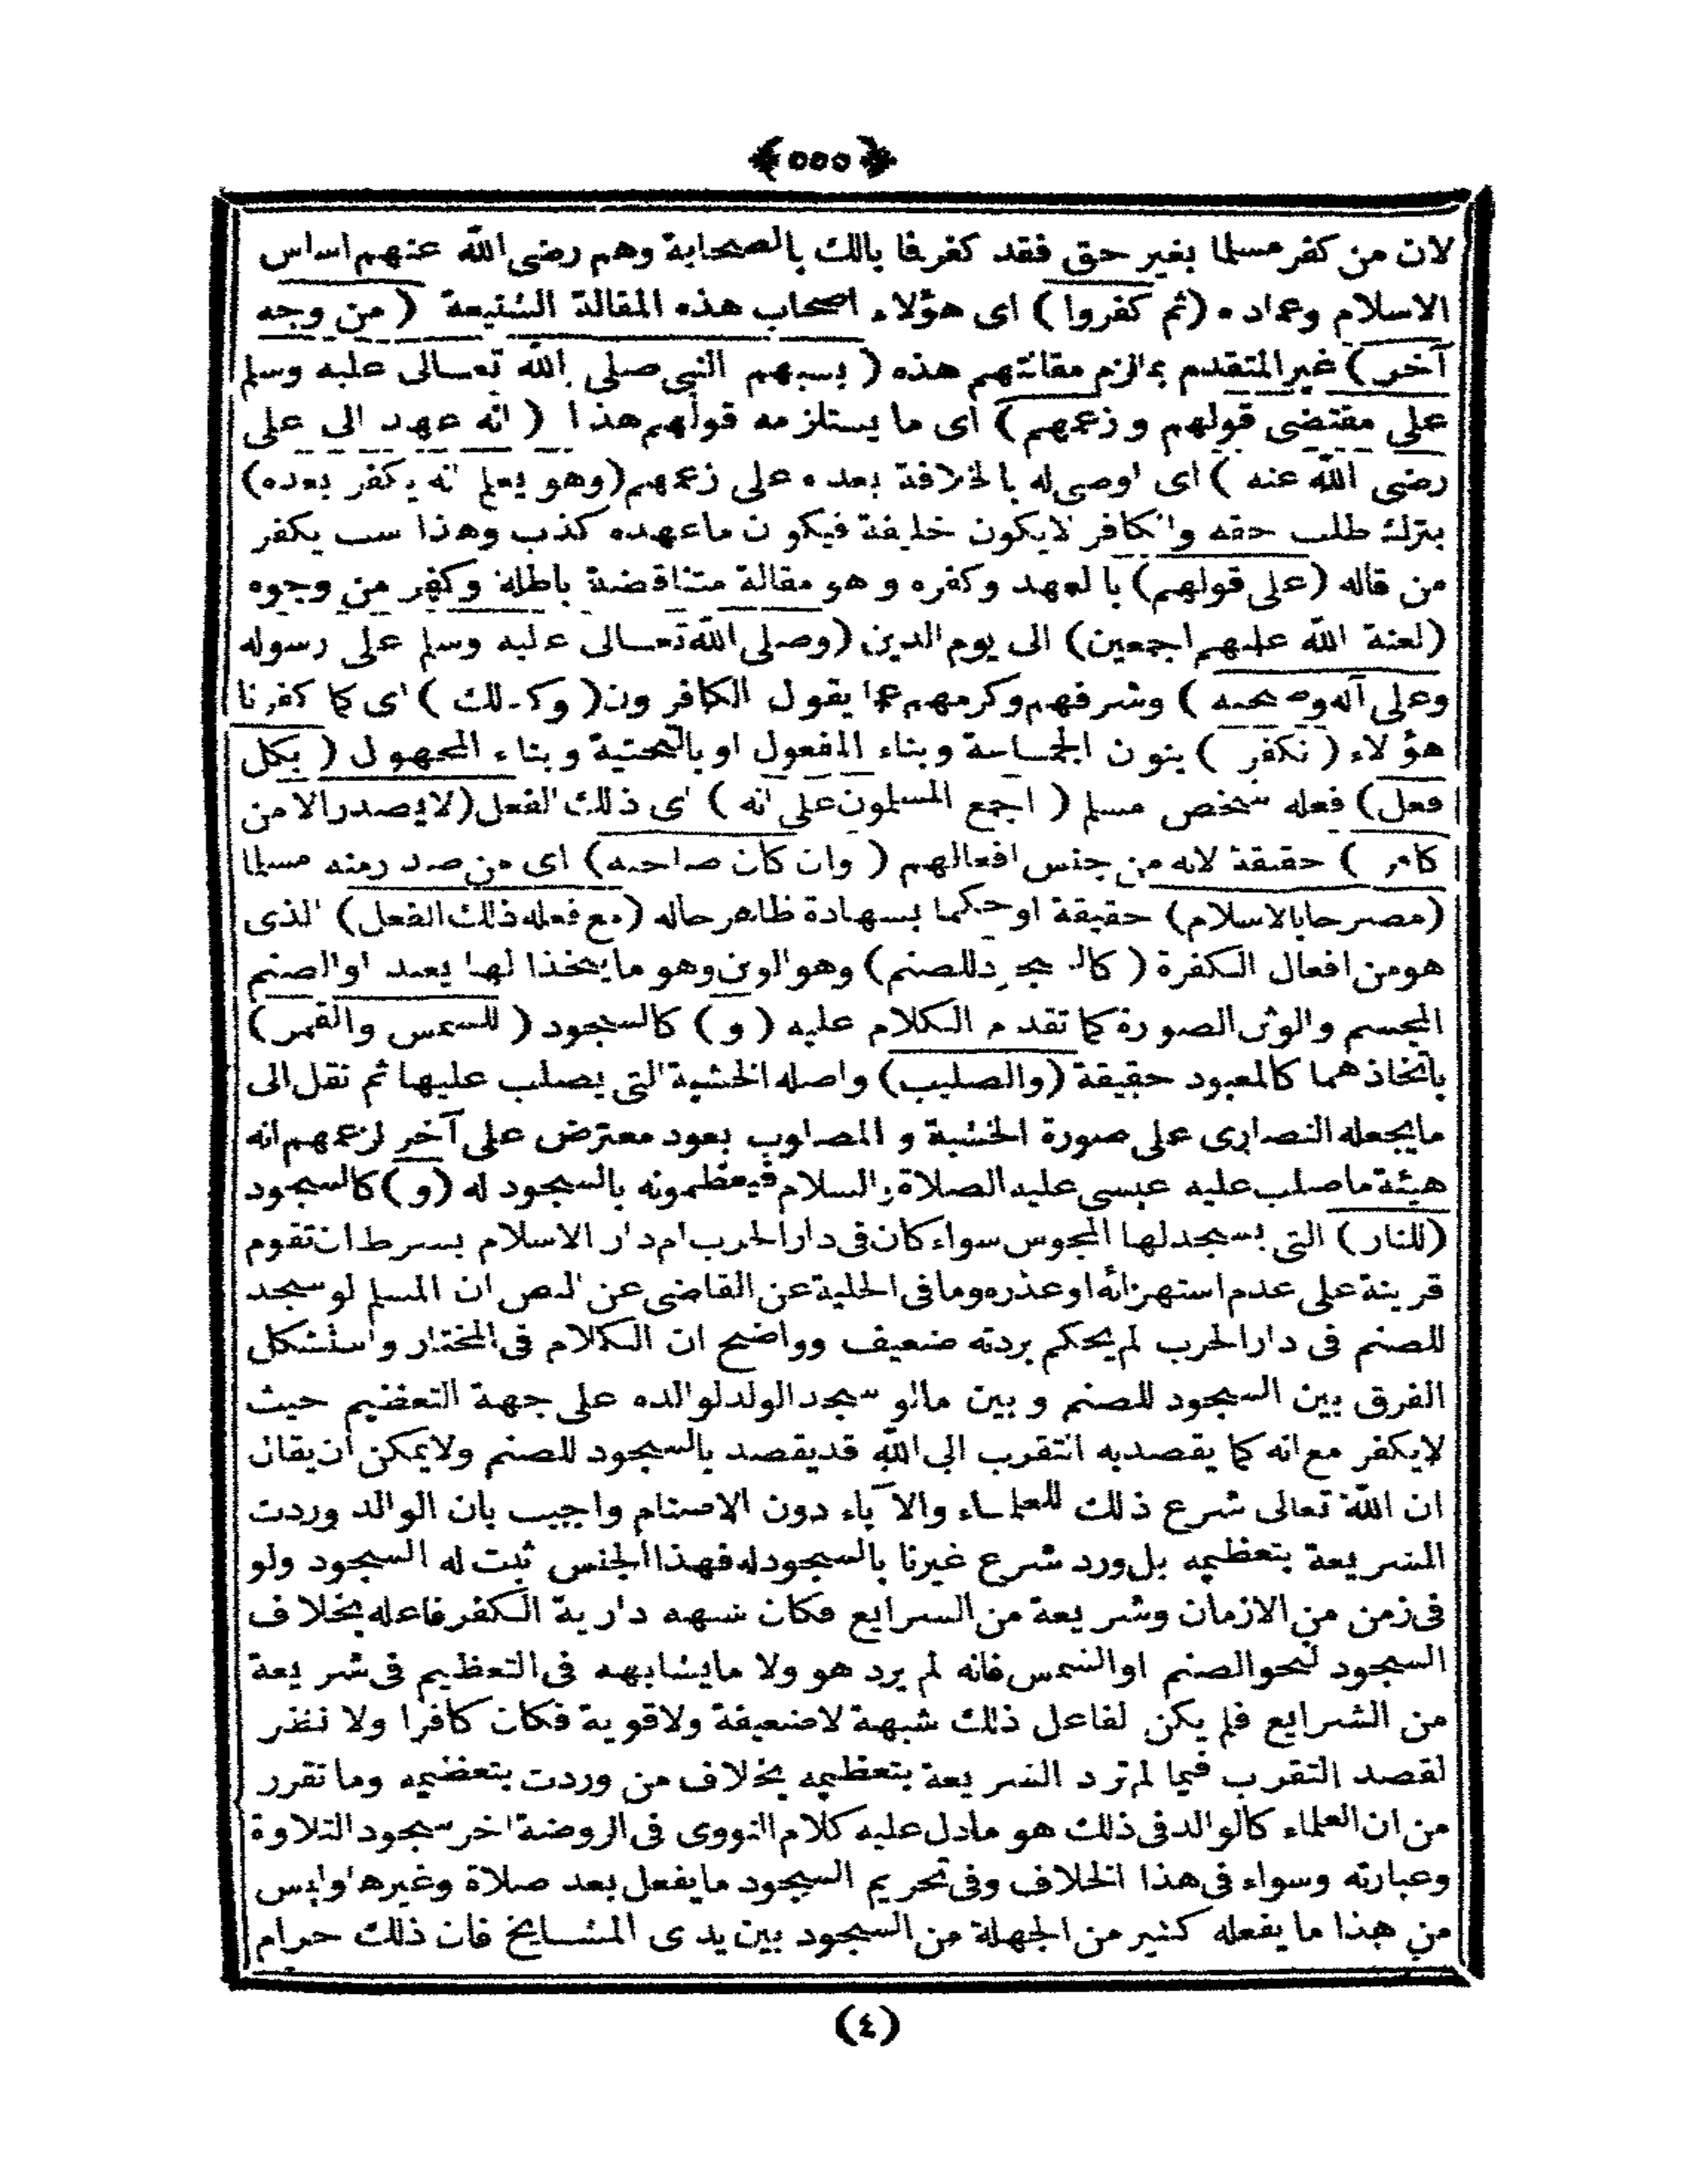 ﴿٥٥٥﴾
لان من كفر مسلما بغير حق فقد كفر فا بالك بالصحابة وهم رضى الله عنهم اساس
الاسلام وعماده (ثم كفروا) اى هؤلاء اصحاب هذه المقالة الشنيعة (من وجه
آخر) غير المتقدم بما لزم مقالتهم هذه (بسبهم النبى صلى الله تعالى عليه وسلم
على مقتضى قولهم وزعمهم) اى ما يستلزمه قولهم هذا (انه عهد الى على
رضى الله عنه) اى اوصى له بالخلافة بعده على زعمهم (وهو يعلم انه يكفر بعده)
بترك طلب حقه والكافر لايكون خليفة فيكون ماعهده كذب وهذا سب يكفر
من قاله (على قولهم) بالعهد وكفره وهو مقالة متناقضة باطلة وكفر من وجوه
(لعنة الله عليهم اجمعين) الى يوم الدين (وصلى الله تعالى عليه وسلم على رسوله
وعلى آله وصحبه) وشرفهم وكرمهم عما يقول الكافرون (وكذلك) اى كما كفرنا
هؤلاء (نكفر) بنون الجماعة وبناء المفعول او بالتحتية وبناء المجهول (بكل
فعل) فعله شخص مسلم (اجمع المسلمون على انه) اى ذلك الفعل (لايصدر الا من
كافر) حقيقة لانه من جنس افعالهم (وان كان صاحبه) اى من صدر منه مسلما
(مصرحا بالاسلام) حقيقة او حكما بشهادة ظاهر حاله (مع فعله ذلك الفعل) الذى
هو من افعال الكفرة (كالسجود للصنم) وهو الوثن وهو ما يتخذ الها يعبد او الصنم
المجسم والوثن الصورة كما تقدم الكلام عليه (و) كالسجود (للشمس والقمر)
باتخاذهما كالمعبود حقيقة (والصليب) واصله الخشبة التى يصلب عليها ثم نقل الى
مايجعله النصارى على صورة الخشبة و المصلوب بعود معترض على آخر لزعمهم انه
هيئة ما صلب عليه عيسى عليه الصلاة والسلام فيعظمونه بالسجود له (و) كالسجود
(للنار) التى يسجد لها المجوس سواء كان فى دار الحرب ام دار الاسلام بشرط ان تقوم
قرينة على عدم استهزائه او عذره وما فى الحلية عن القاضى عن النص ان المسلم لو سجد
للصنم فى دار الحرب لم يحكم بردته ضعيف وواضح ان الكلام فى المختار واستشكل
الفرق بين السجود للصنم وبين مالو سجد الولد لوالده على جهة التعظيم حيث
لايكفر مع انه كما يقصد به التقرب الى الله قد يقصد بالسجود للصنم ولايمكن ان يقال
ان الله تعالى شرع ذلك للعلماء والآباء دون الاصنام واجيب بان الوالد وردت
الشريعة بتعظيمه بل ورد شرع غيرنا بالسجود له فهذا الجنس ثبت له السجود ولو
فى زمن من الازمان وشريعة من الشرايع فكان شبهه دارية الكفر فاعله بخلاف
السجود لنحو الصنم او الشمس فانه لم يرد هو ولا مايشابهه فى التعظيم فى شريعة
من الشرايع فلم يكن لفاعل ذلك شبهة لاضعيفة ولاقوية فكان كافرا ولا نظر
لقصد التقرب فيما لم ترد الشريعة بتعظيمه بخلاف من وردت بتعظيمه وما تقرر
من ان العلماء كالوالد فى ذلك هو مادل عليه كلام النووى فى الروضة اخر سجود التلاوة
وعبارته وسواء فى هذا الخلاف وفى تحريم السجود مايفعل بعد صلاة وغيرها وليس
من هذا ما يفعله كثير من الجهلة من السجود بين يدى المشايخ فان ذلك حرام
(٤)